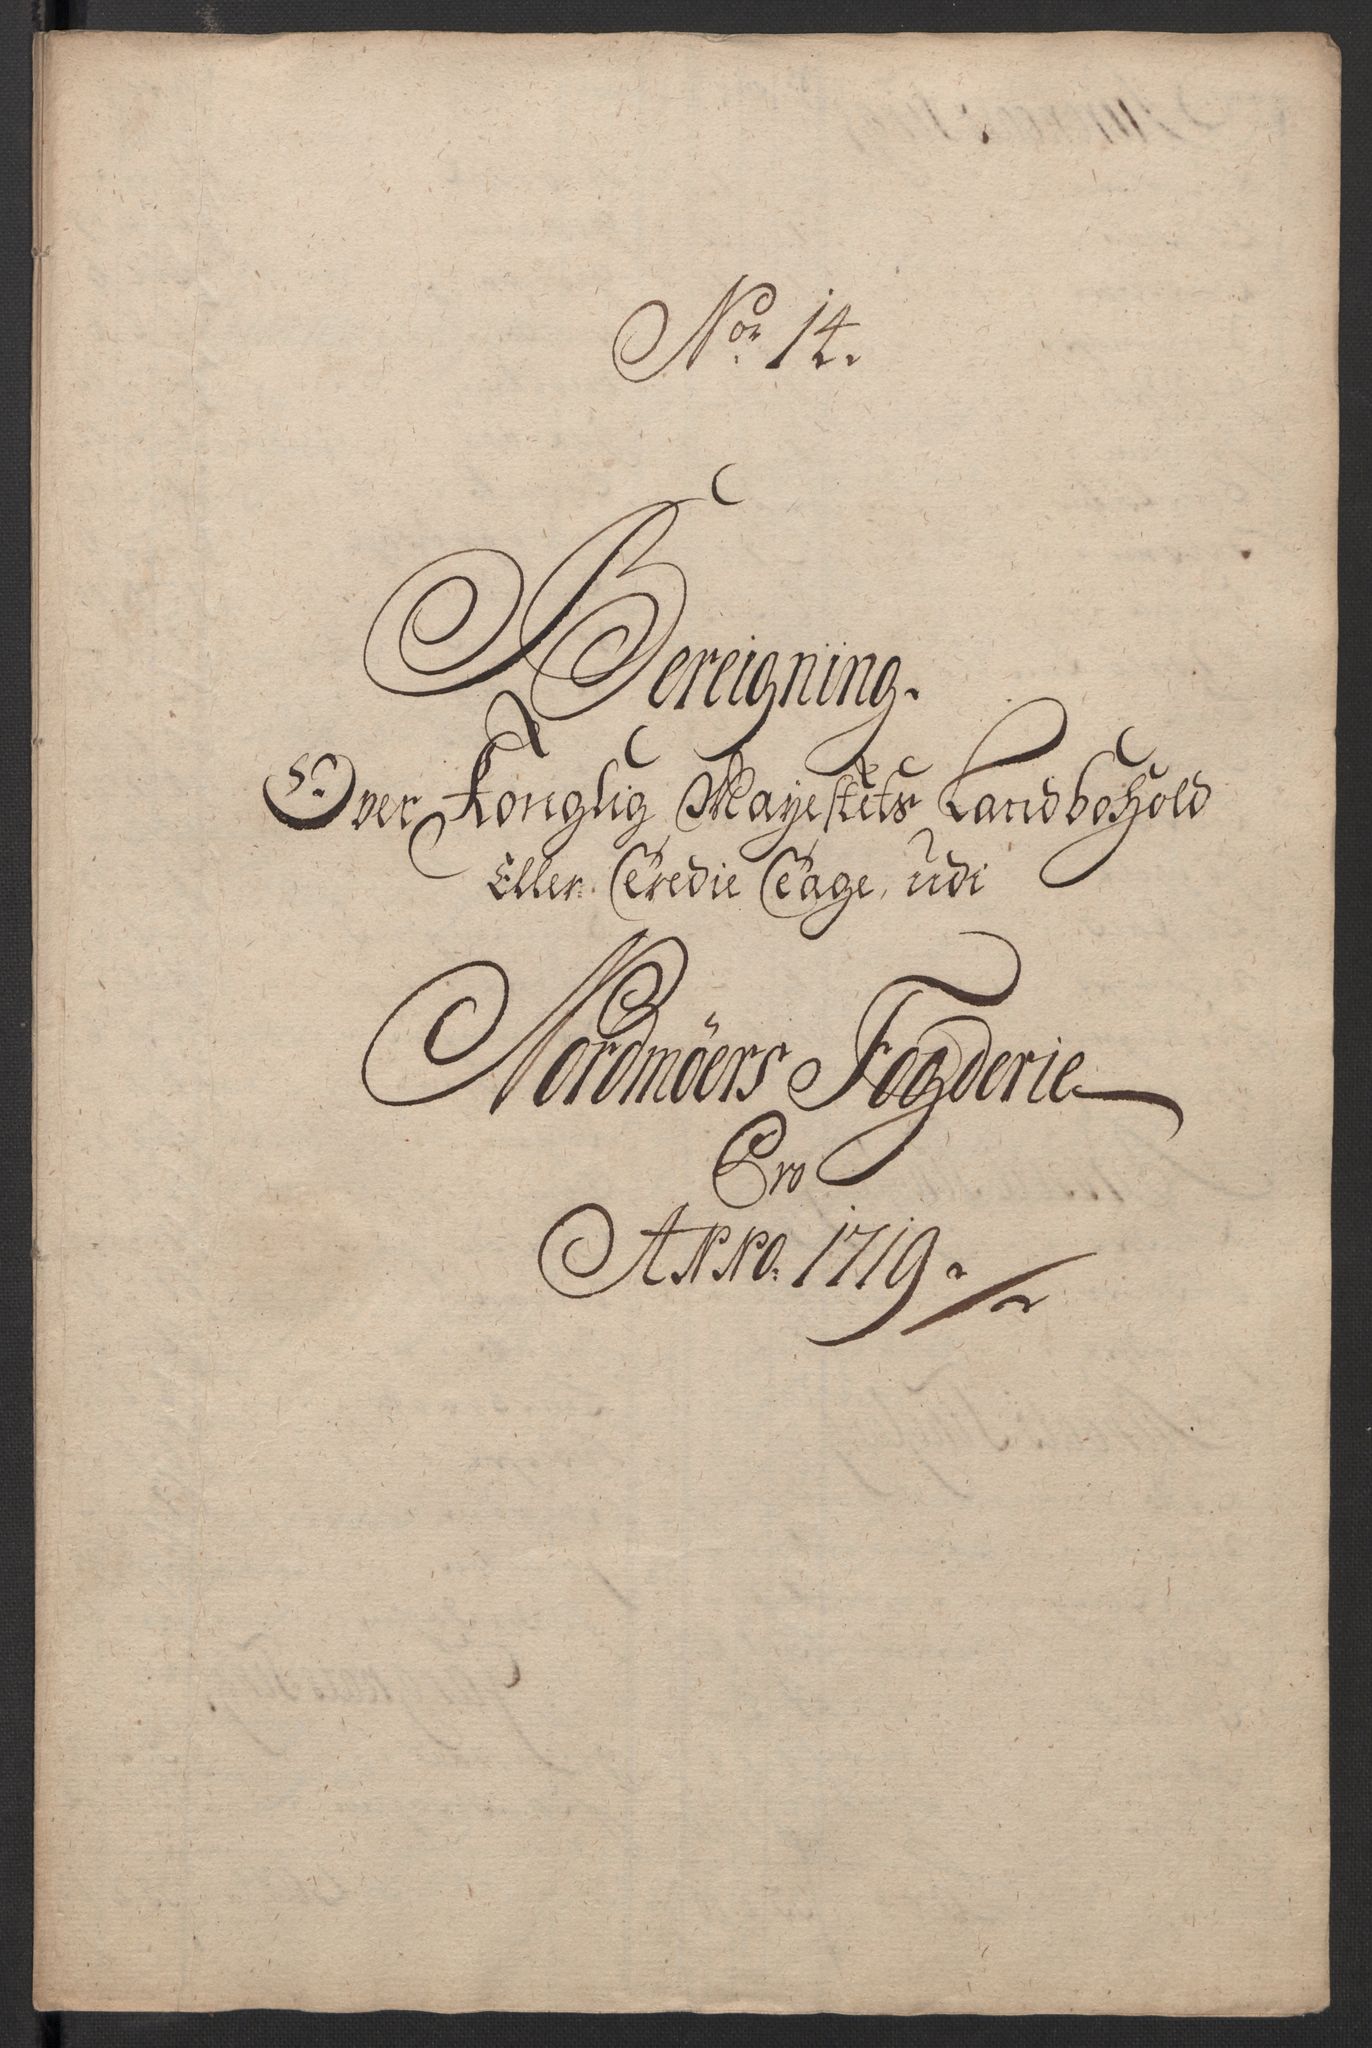 No: 14.
Bereigning.
Over Konglig Mayestets Landbohold
Eller Tredie Tage, udi
Nordmöers Fogderie
Pro
ANNO. 1719.